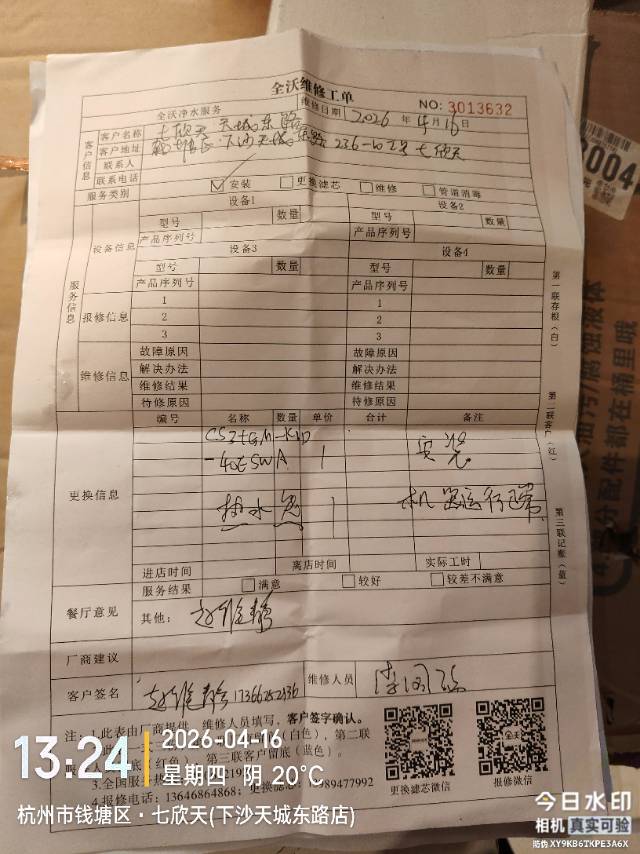 全沃维修工单
全沃净水服务 维修日期 2026 年 4 月 16 日 NO: 3013632
客户信息
客户名称 七欣天 天城东路
客户地址 下沙天城东路 236-10 2号 七欣天
联系人
联系电话
服务类别 ✓安装 更换滤芯 维修 管道消毒
服务信息
设备信息
设备1 设备2
型号 数量 型号 数量
产品序列号 产品序列号
设备3 设备4
型号 数量 型号 数量
产品序列号 产品序列号
报修信息
1 1
2 2
3 3
维修信息
故障原因 故障原因
解决办法 解决办法
维修结果 维修结果
待修原因 待修原因
更换信息
编号 名称 数量 单价 合计 备注
-40ESWA 1 安装
热水 1 机器运行正常
进店时间 离店时间 实际工时
服务结果 满意 较好 较差不满意
餐厅意见 其他: 赵维静
厂商建议
客户签名 赵维静 17366252436 维修人员
第一联存根(白)
第二联客户(红)
第三联记账(蓝)
注: 1.此表由厂商提供, 维修人员填写, 客户签字确认。
(白色), 第二联
(红色), 第三联客户留底(蓝色)。
3.全国服务热
4.报修电话: 13646864868; 更换滤芯: 989477992
更换滤芯微信 报修微信
全沃
004
13:24
2026-04-16
星期四·阴 20°C
杭州市钱塘区·七欣天(下沙天城东路店)
今日水印
相机 真实可验
防伪 XY9KB6TKPE3A6X